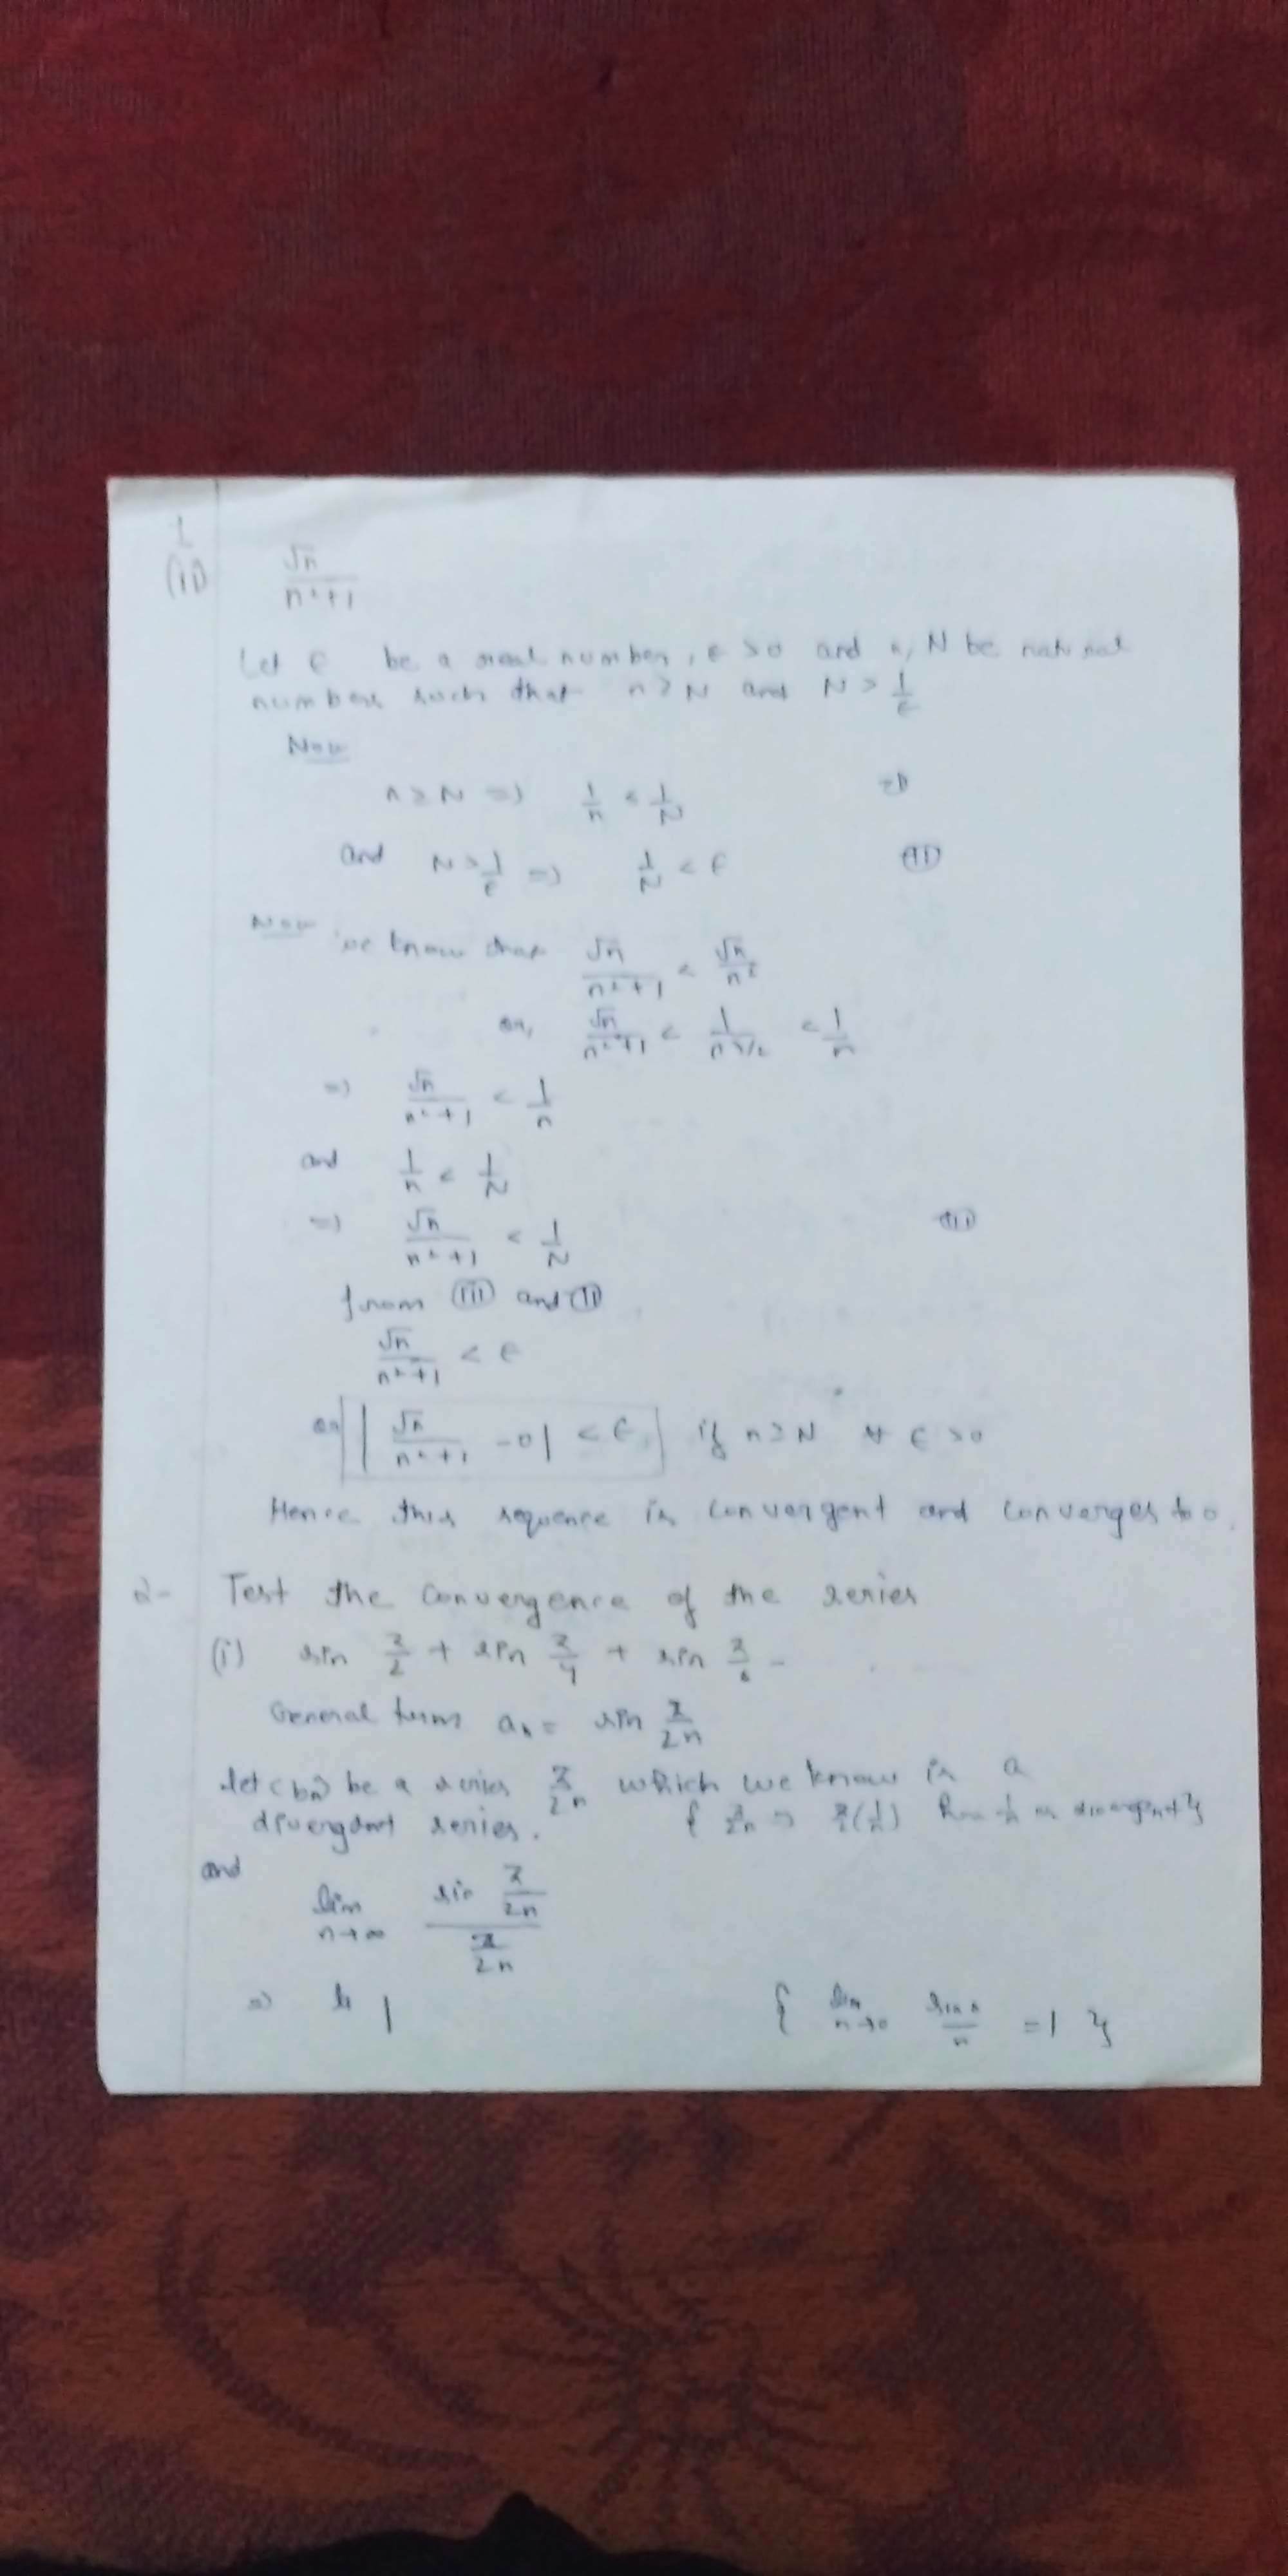 1
(ii) √n / (n²+1)
Let ε be a real number, ε > 0 and n, N be natural
numbers such that n ≥ N and N > 1/ε
Now
n ≥ N => 1/n < 1/N
and N > 1/ε => 1/N < ε (II)
Now we know that √n / (n²+1) < √n / n²
or, √n / (n²+1) < 1 / n^3/2 < 1/n
=> √n / (n²+1) < 1/n
and 1/n < 1/N
=> √n / (n²+1) < 1/N (III)
from (III) and (II)
√n / (n²+1) < ε
or | √n / (n²+1) - 0 | < ε, if n ≥ N ∀ ε > 0
Hence this sequence is convergent and converges to 0.
2- Test the convergence of the series
(i) sin 3/2 + sin 3/4 + sin 3/6 -
General term aₙ = sin 3/2n
let <bn> be a series 3/2n which we know is a
divergent series. { 3/2n => 3/2 (1/n) 1/n is divergent }
and
lim n→∞ sin 3/2n / 3/2n
=> 1 { lim n→0 sin n / n = 1 }